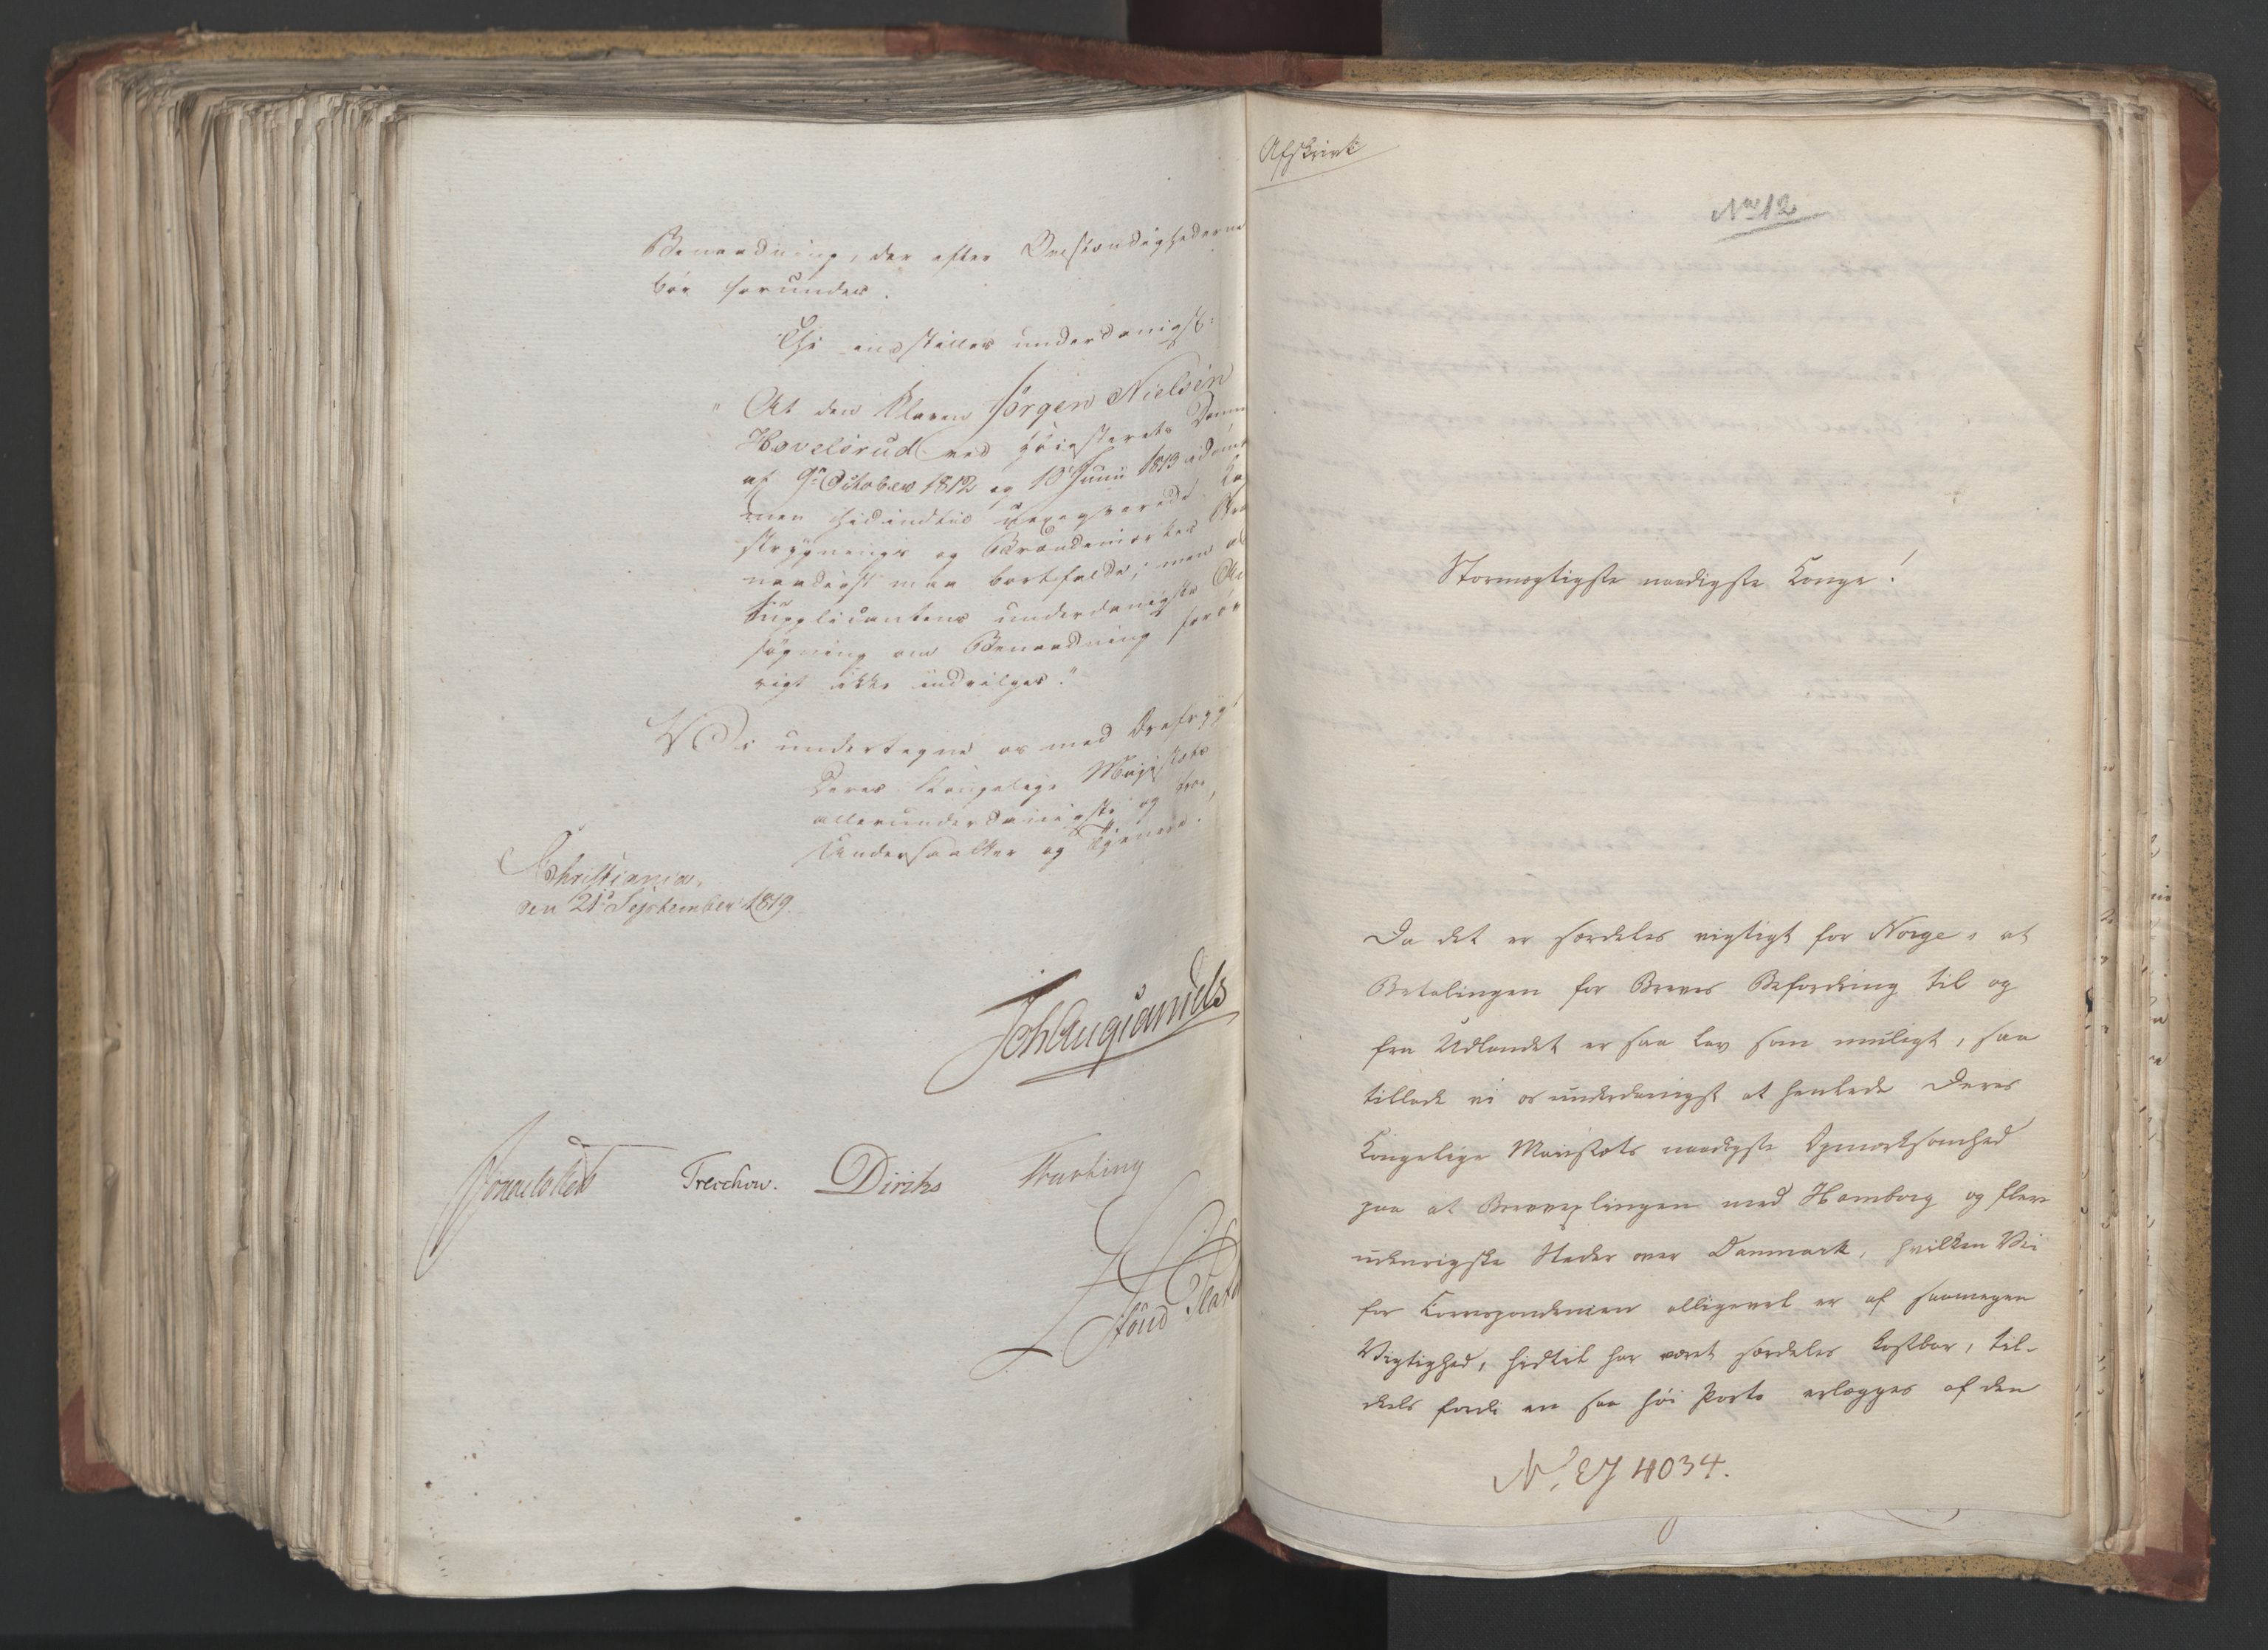 Benaadning, der efter Omstændighederne
bør forundes.
Thi indstilles underdanigst:
"At den Slaven Jörgen Nielsen
Hovelsrud ved Høiesterets Domme
af 9de October 1812 og 10de Junii 1813 idømte
men hidindtil uexeqverede Kag-
strygnings og Brændemærkes Straf
naadigst maa bortfalde; men at
Supplicantens underdanigste An-
søgning om Benaadning forøv-
rigt ikke indvilges."
Vi undertegne os med Ærefrygt
Deres Kongelige Majestæts
allerunderdanigste og troe
Undersaatter og Tjenere.
Christiania,
den 21de September 1819.
Joh Aug Sandels
Sommelskell
Treschow. Diriks Krurling
Afskrivt
No 12
Stormægtigste naadigste Konge!
Da det er særdeles vigtigt for Norge, at
Betalingen for Breves Befordring til og
fra Udlandet er saa lav som muligt, saa
tillade vi os underdanigst at henlede Deres
Kongelige Maiestæts naadigste Opmærksomhed
paa at Brevvexlingen med Hamborg og flere
udenrigske Steder over Danmark, hvilken Vei
for Correspondencen alligevel er af saamegen
Vigtighed, hidtil har været særdeles kostbar, til-
deels fordi en saa høi Porto erlægges af den
N. EJ 4034.